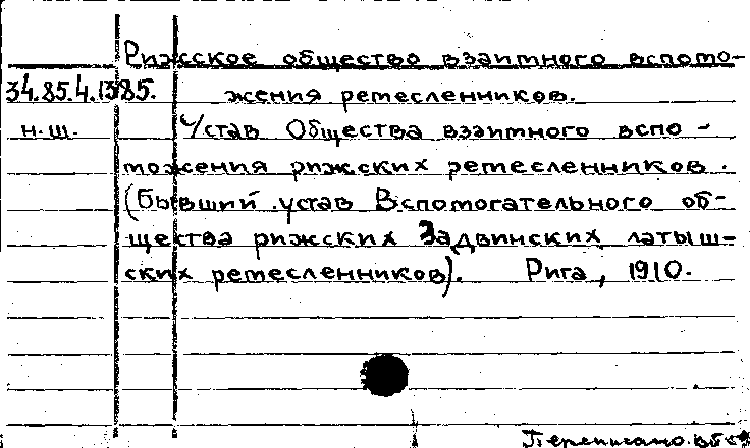 Рижское общество взаимного вспомо-
34.85.4.1385. жения ремесленников.
н.ш. Устав Общества взаимного вспо-
можения рижских ремесленников.
(бывший устав Вспомогательного об-
щества рижских Задвинских латыш-
ских ремесленников). Рига, 1910.
Переписано